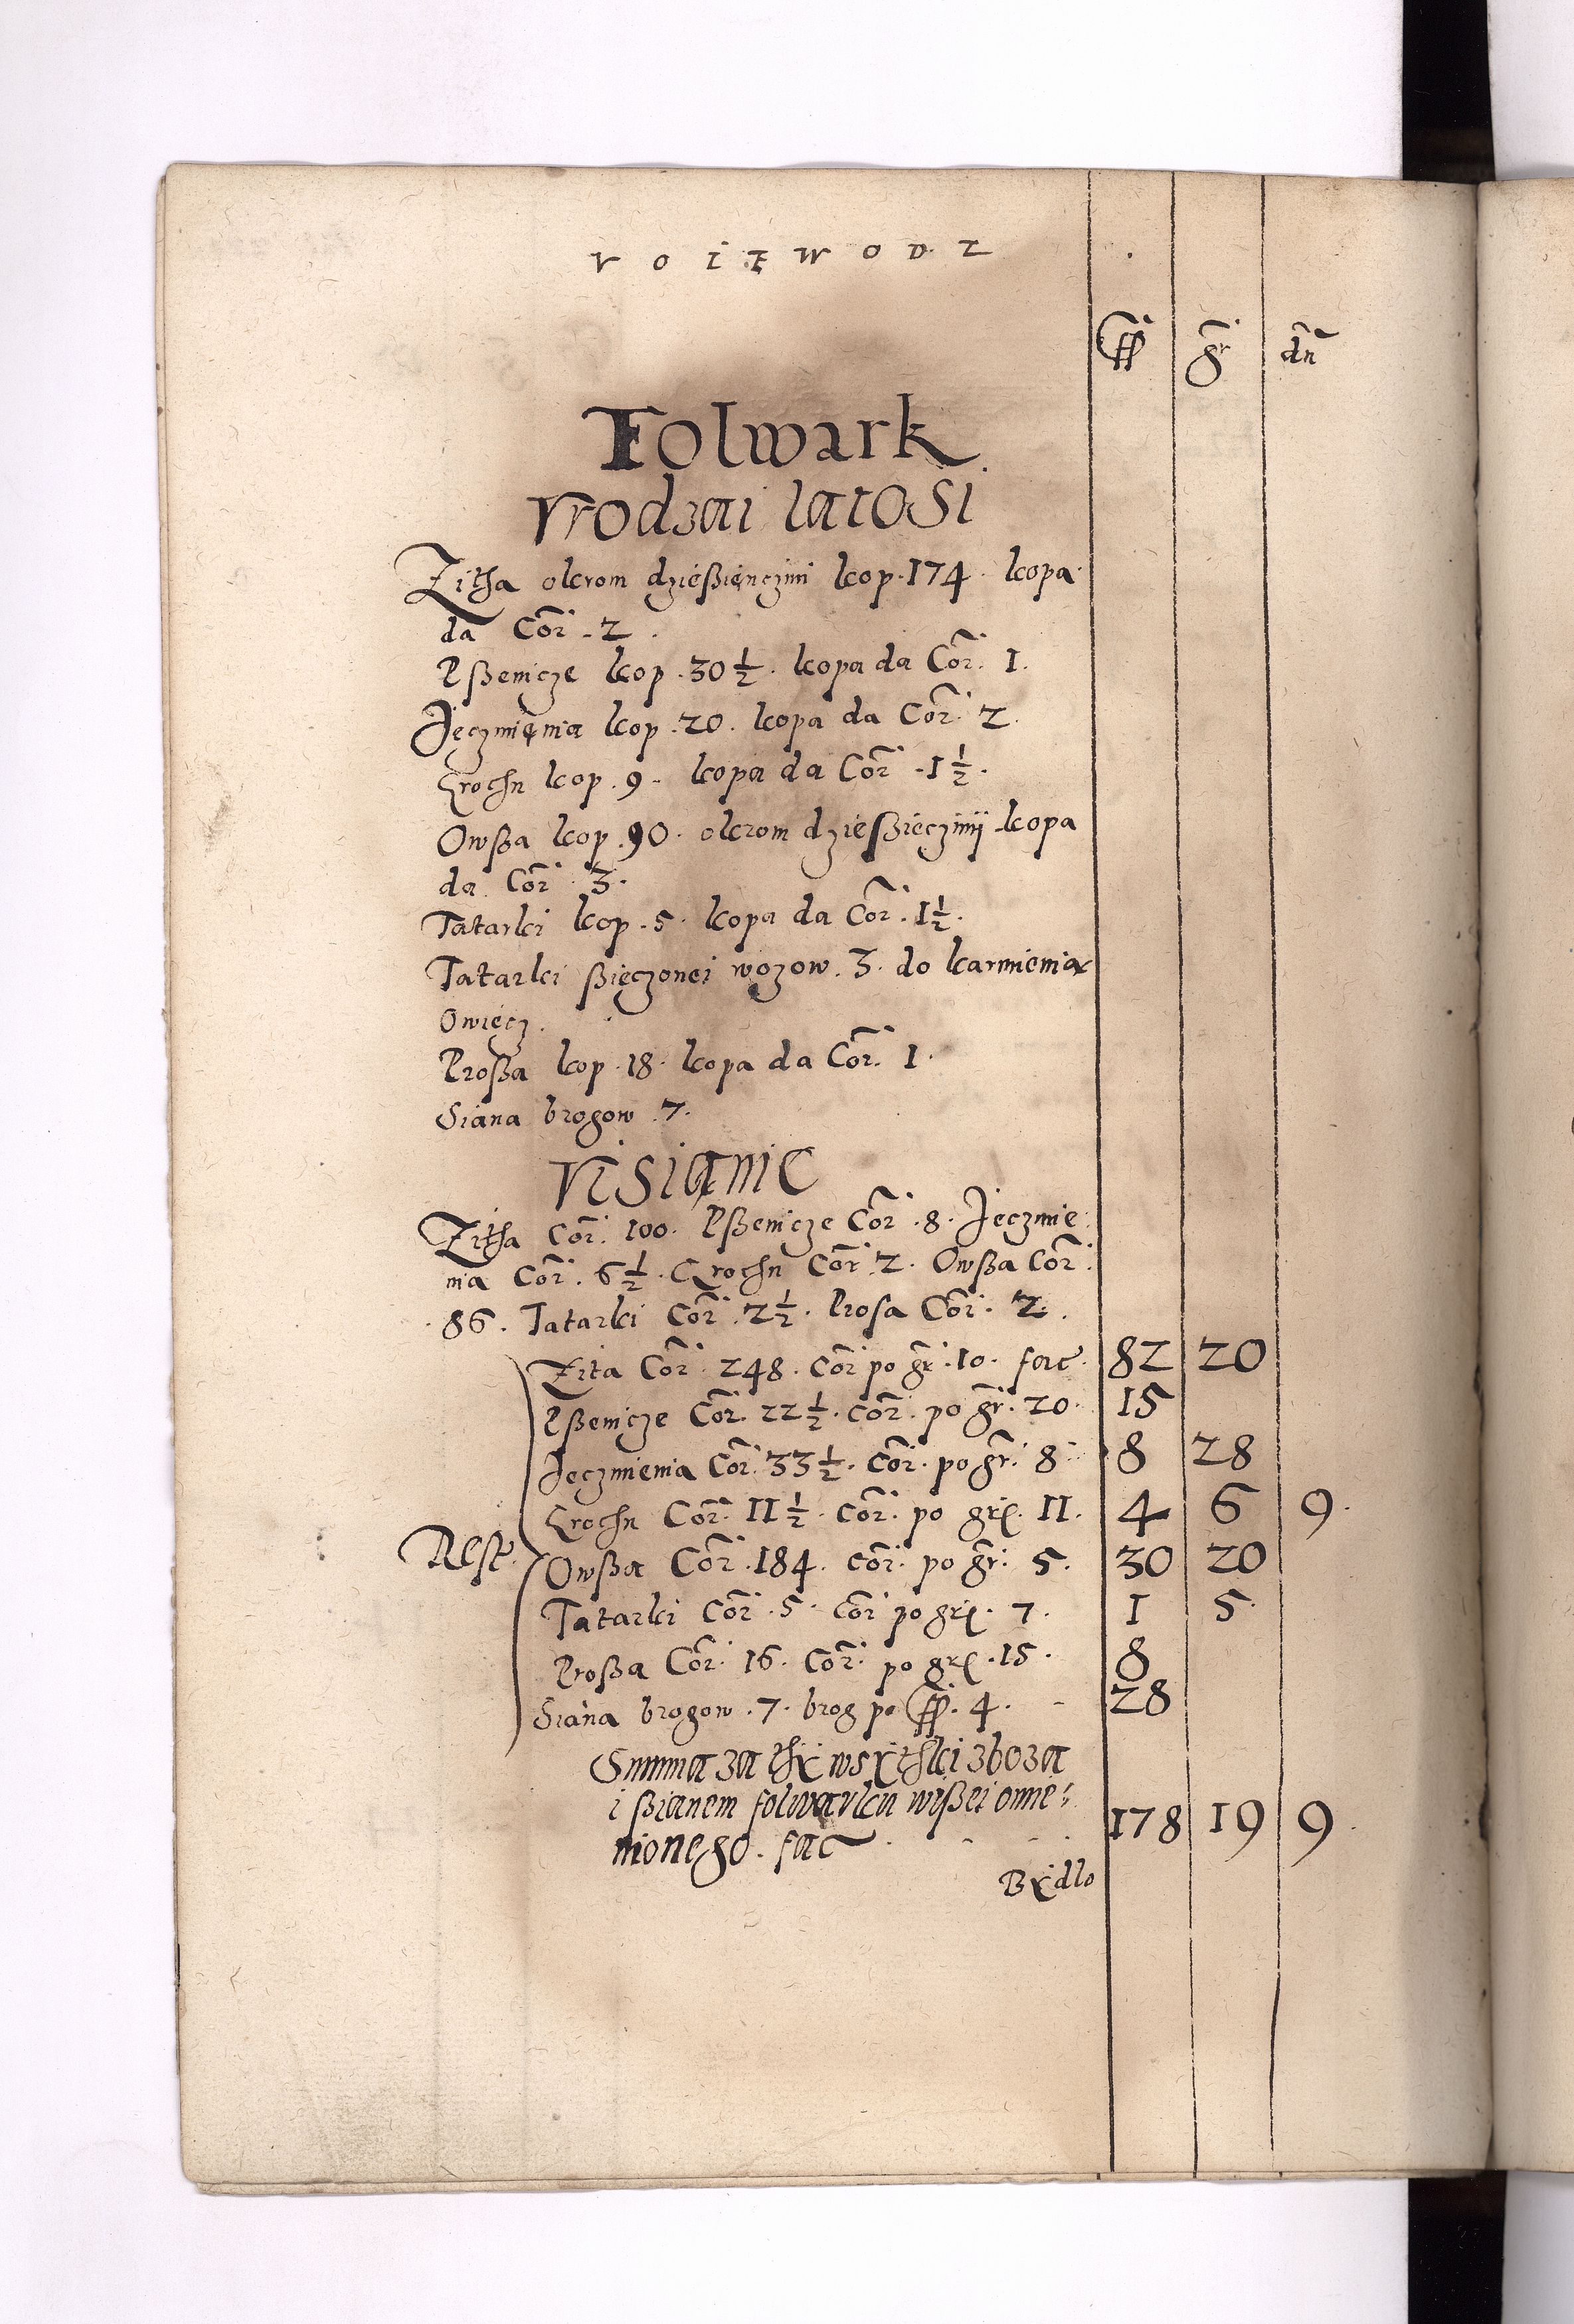 VOIEWODZ
ff gr dn
Folwark
Vrodzai latosi
Zitha okrom dzießięnczini kop. 174. kopa
da Cor. 2.
Pßenicze kop. 30 1/2. kopa da Cor. 1.
Jęczmięnia kop. 20. kopa da Cor. 2.
Grochu kop. 9. kopa da Cor. 1 1/2.
Owßa kop. 90. okrom dzießięczinÿ kopa
da Cor. 3.
Tatarki kop. 5. kopa da Cor. 1 1/2.
Tatarki ßięczonei wozow. 3. do karmienia
Owiecz.
Proßa kop. 18. kopa da Cor. 1.
Siana brogow. 7.
Visianie
Zitha Cor. 100. Pßenicze Cor. 8. Jęczmie
nia Cor. 6 1/2. Grochu Cor. 2. Owßa Cor.
86. Tatarki Cor. 2 1/2. Prosa Cor. 2.
Zita Cor. 248. Cor po gr. 10. fac. 82 20
Pßenicze Cor. 22 1/2. cor. po gr. 20. 15
Jęczmienia Cor. 33 1/2. Cor. po gr. 8. 8 28
Grochu Cor. 11 1/2. Cor. po gr. 11. 4 6 9.
Rest. Owßa Cor. 184. cor. po gr. 5. 30 20
Tatarki Cor. 5. Cor po gr. 7. 1 5.
Proßa Cor. 16. Cor. po gr. 15. 8
Siana brogow. 7. brog po ff. 4. 28
Summa za thy wsythki zboza
i ßianem folwarku wißei omie:
nionego. fac 178 19 9.
Bydlo